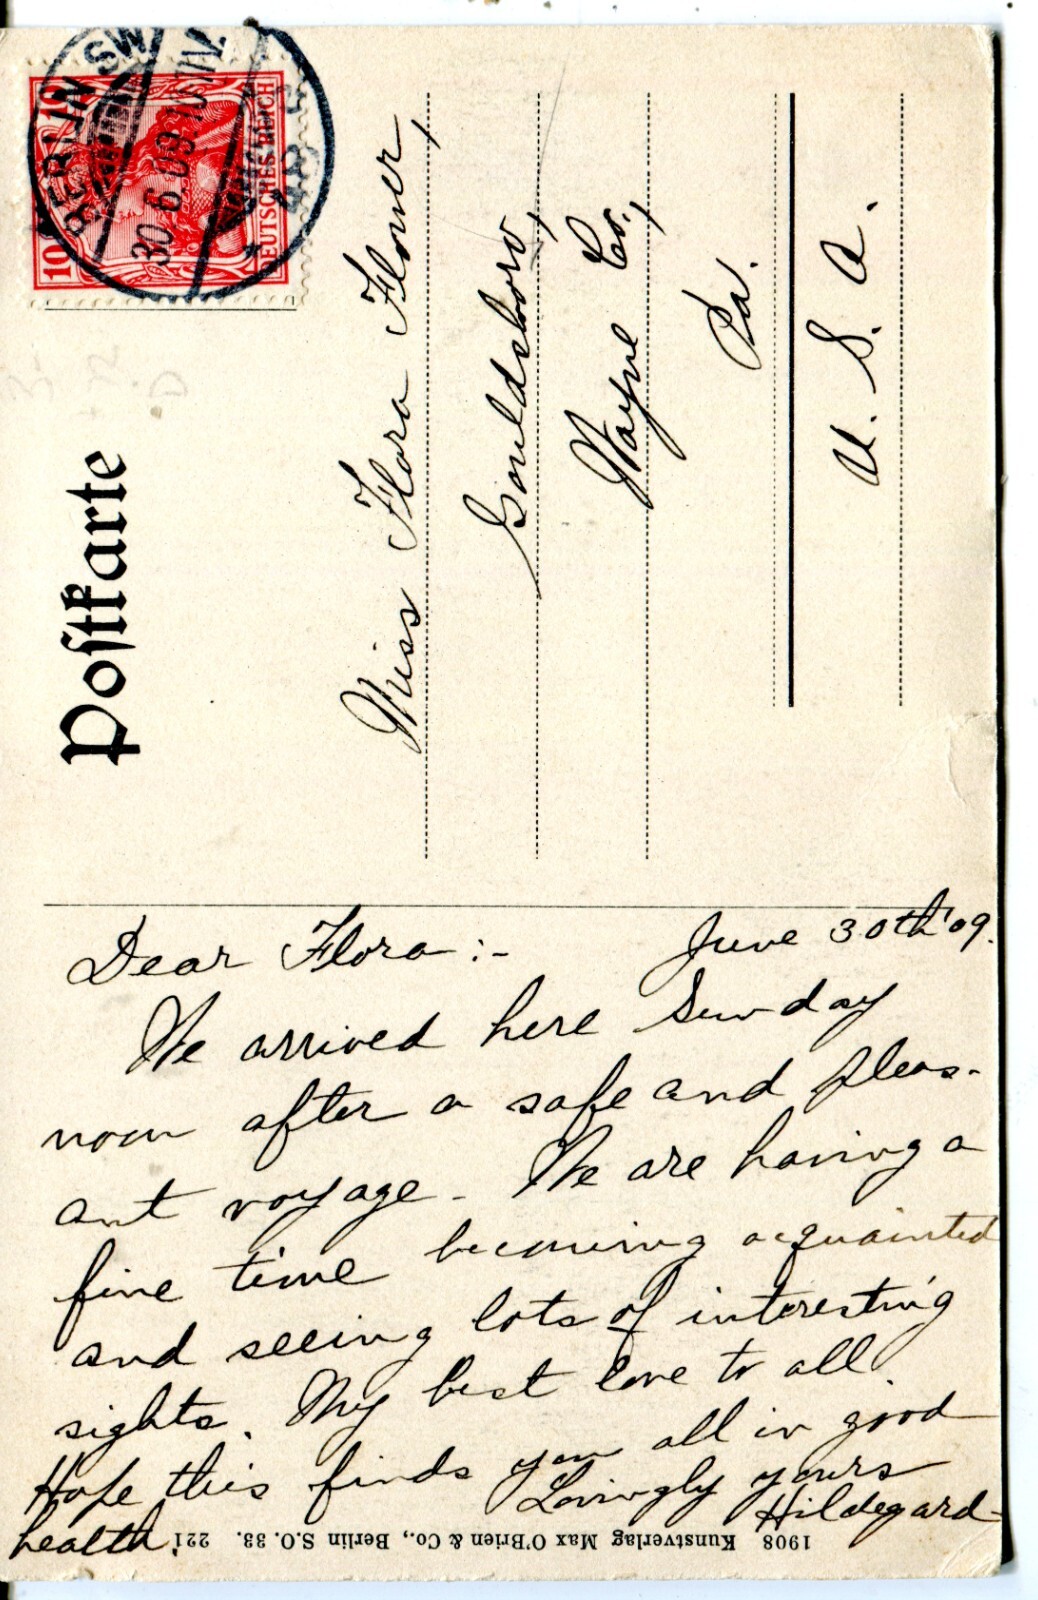 Postkarte
BERLIN SW
30.6.09.10-11V.
10
10
DEUTSCHES REICH
Miss Flora Flower,
Gouldsboro,
Wayne Co.,
Pa.
U. S. A.
June 30th '09.
Dear Flora :-
We arrived here Sunday
noon after a safe and pleas-
ant voyage - We are having a
fine time becoming acquainted
and seeing lots of interesting
sights. My best love to all.
Hope this finds you all in good
health.
Lovingly yours
Hildegard-
1908 Kunstverlag Max O'Brien & Co., Berlin S.O. 33. 221